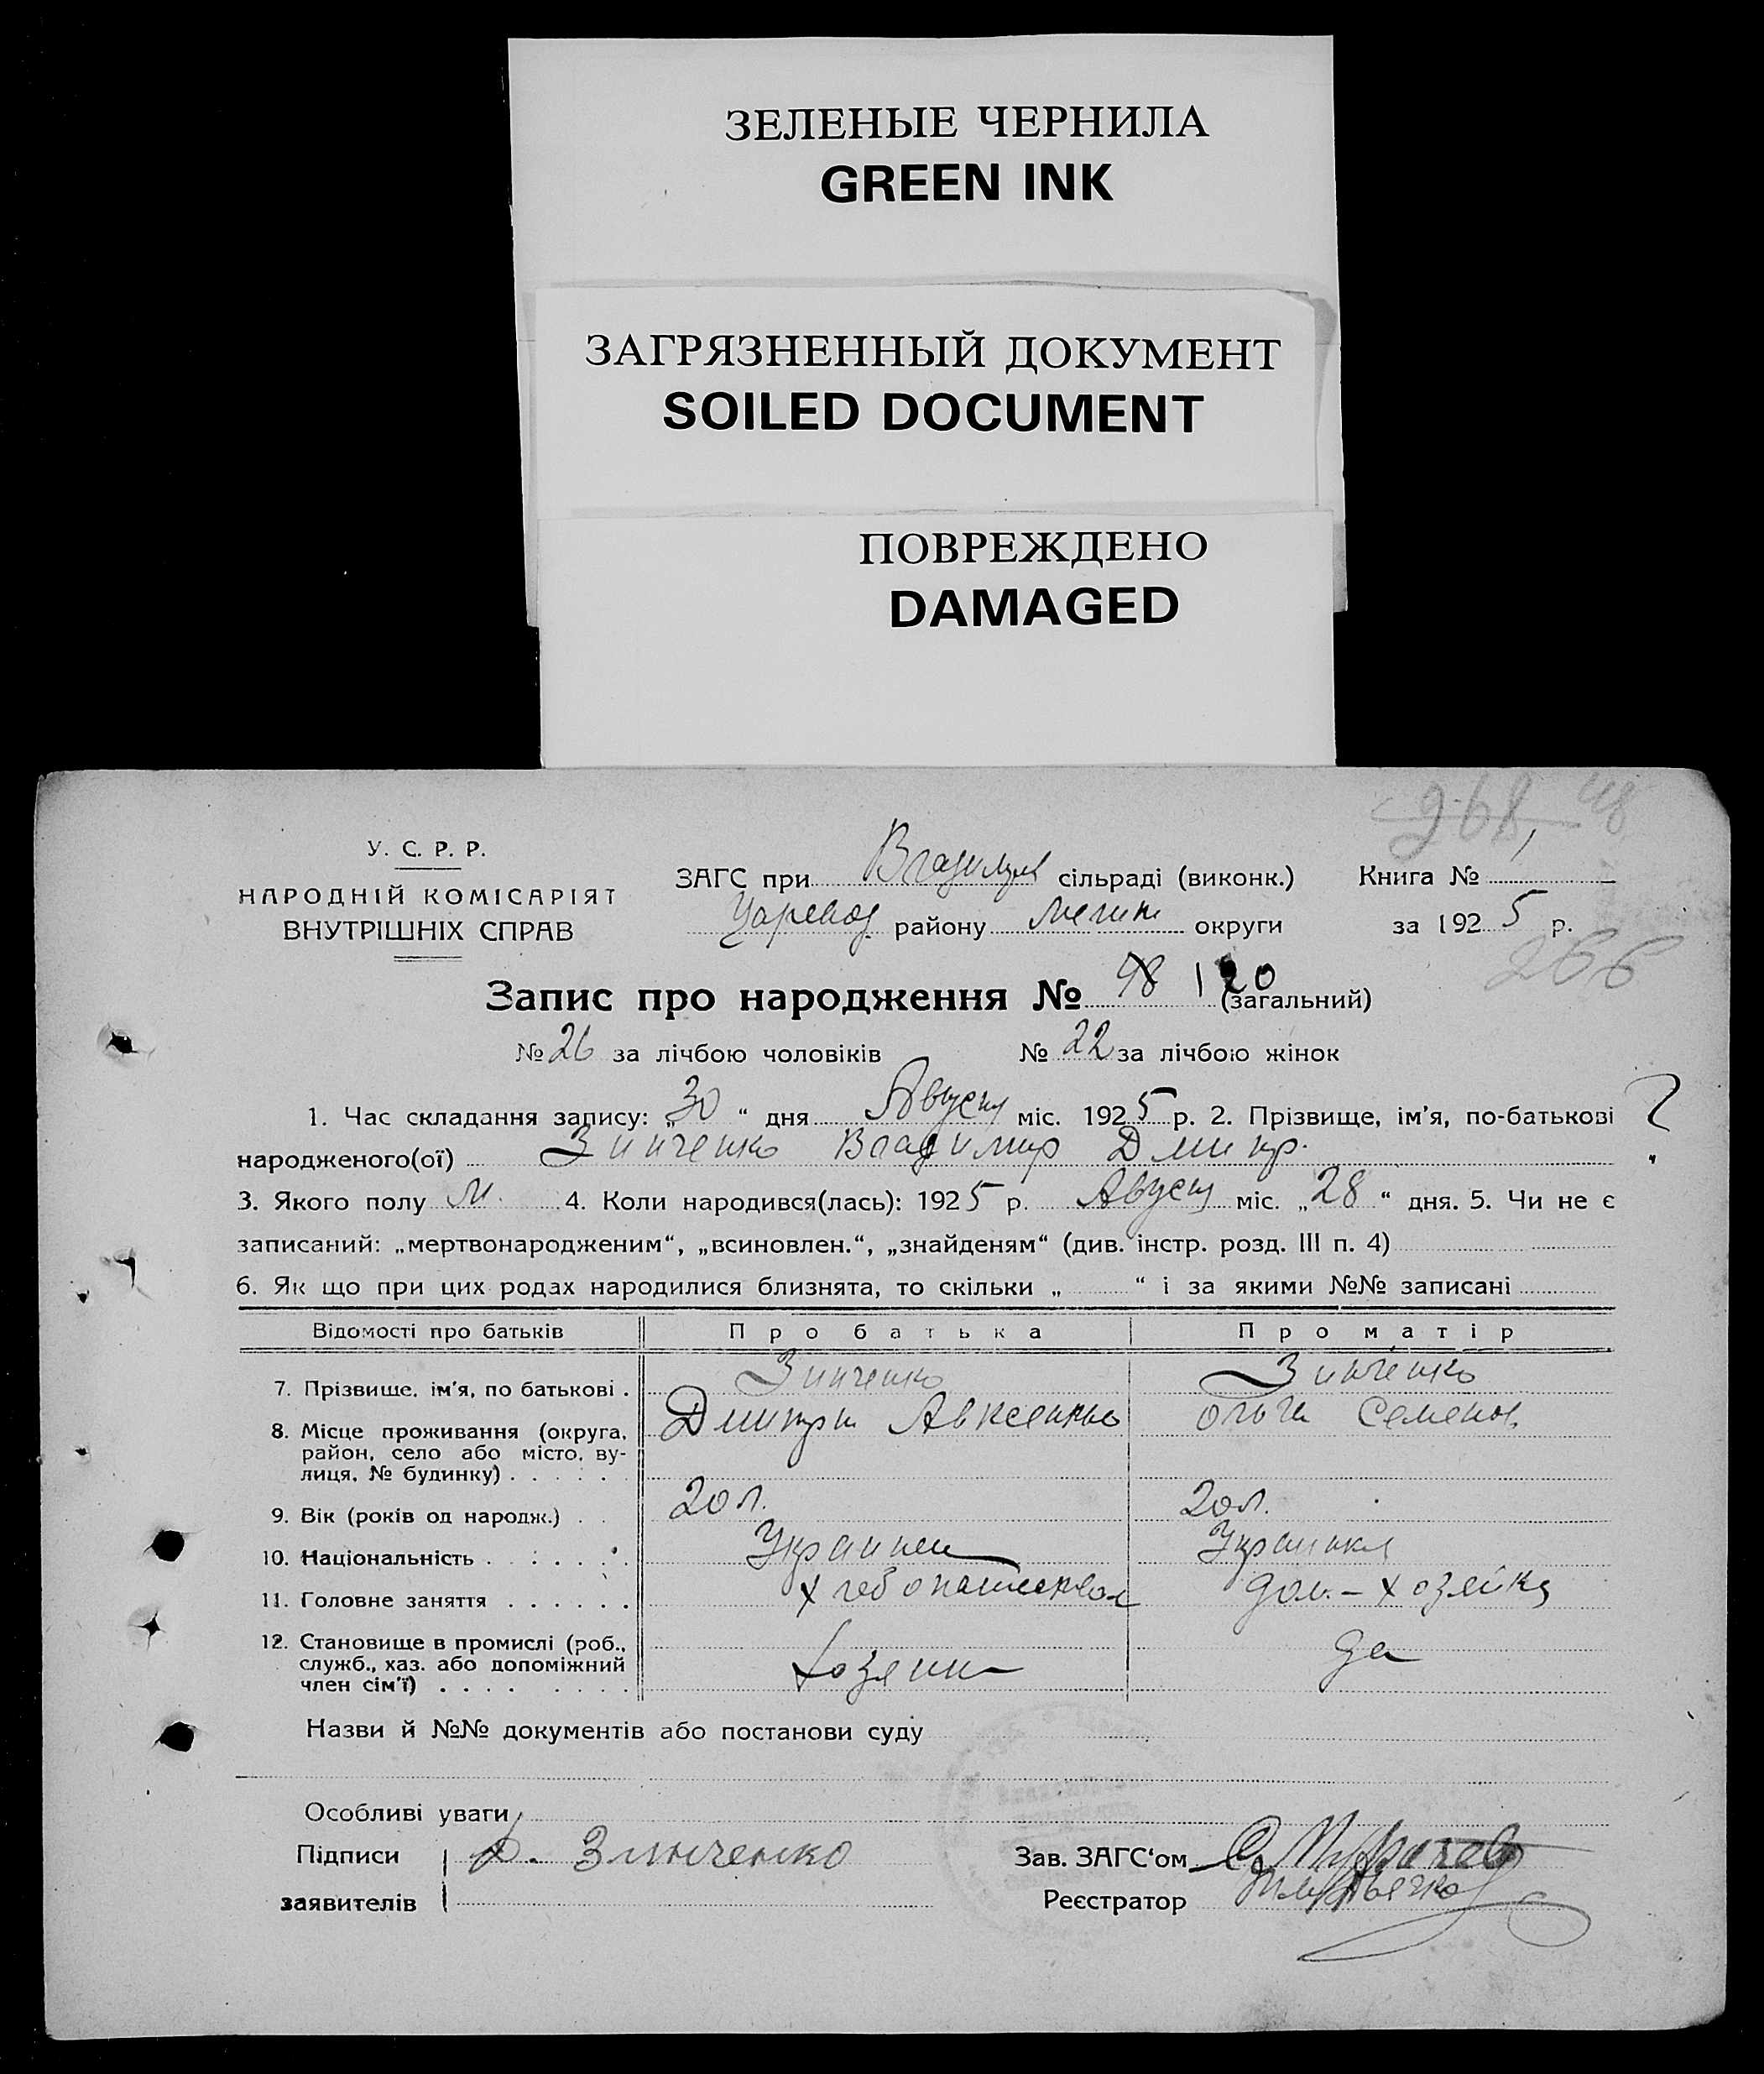 ЗЕЛЕНЫЕ ЧЕРНИЛА
GREEN INK
ЗАГРЯЗНЕННЫЙ ДОКУМЕНТ
SOILED DOCUMENT
ПОВРЕЖДЕНО
DAMAGED
268 48
У. С. Р. Р.
НАРОДНІЙ КОМІСАРІЯТ
ВНУТРІШНІХ СПРАВ
ЗАГС при сільраді (виконк.) Книга № 1
району округи за 1925 р.
266
Запис про народження № 48 120 (загальний)
№ 26 за лічбою чоловіків № 22 за лічбою жінок
1. Час складання запису: „30“ дня Август міс. 1925 р. 2. Прізвище, ім’я, по-батькові ?
народженого(ої) Зинченко Владимир Дмитр.
3. Якого полу М. 4. Коли народився(лась): 1925 р. Август міс. „28“ дня. 5. Чи не є
записаний: „мертвонародженим“, „всиновлен.“, „знайденям“ (див. інстр. розд. III п. 4)
6. Як що при цих родах народилися близнята, то скільки „ “ і за якими №№ записані
Відомості про батьків Про батька Про матір
7. Прізвище, ім’я, по батькові . Зинченко Зинченко
8. Місце проживання (округа, Дмитрий Ольга Семенов.
район, село або місто, ву-
лиця, № будинку) . . . . .
9. Вік (років од народж.) . . 20 л. 20 л.
10. Національність . . . . . . Украинец Украинка
11. Головне заняття . . . . . . хлебопашество дом.-хозяйка
12. Становище в промислі (роб.,
служб., хаз. або допоміжний хозяин да
член сім’ї) . . . . . . . .
Назви й №№ документів або постанови суду
Особливі уваги
Підписи Д. Зинченко Зав. ЗАГС‘ом
заявителів Реєстратор